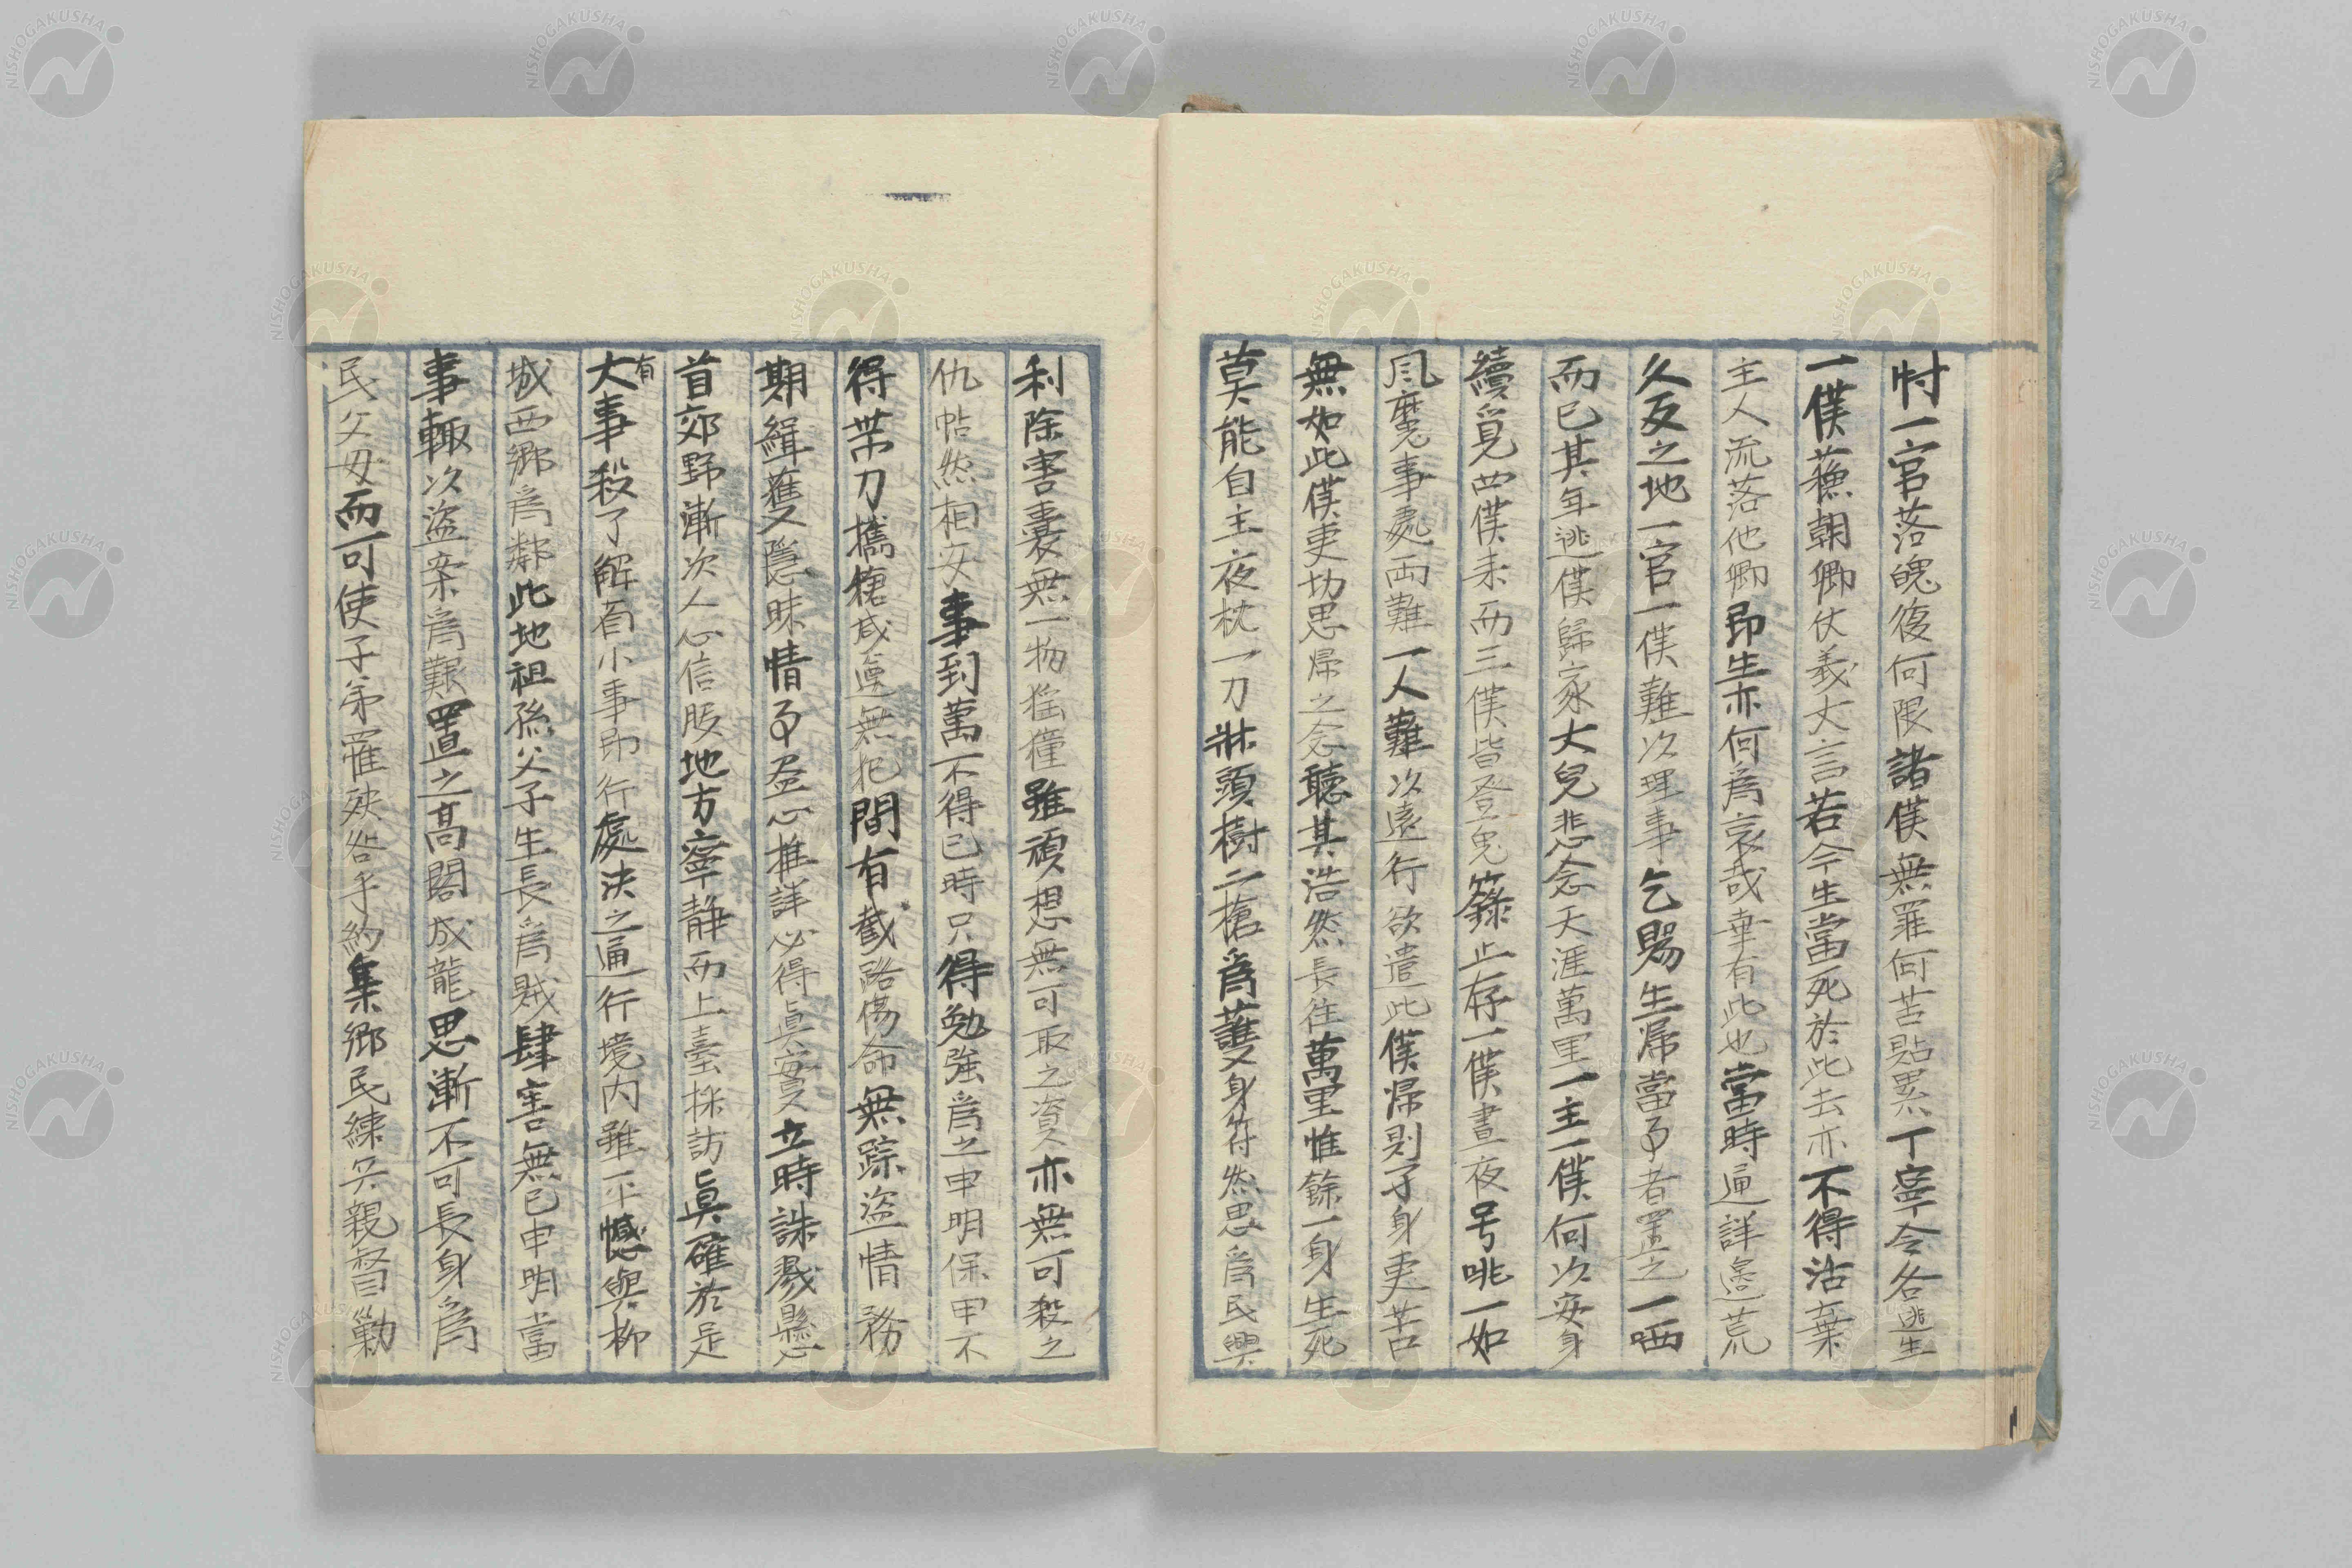 忖一官落魄復何限諸僕無罪何苦貼累丁寧令各逃生
一僕蘓朝卿仗義大言若今生當死於此去亦不得沽棄
主人流落他卿即生亦何為哀哉幸有此也當時通詳邉荒
久反之地一官一僕難次理事乞賜生帰當事者置之一哂
而已其年逃僕歸家大兒悲念天涯萬里一主一僕何次安身
續覔四僕来而三僕皆登鬼籙止存一僕晝夜号咷一如
風魔事處両難一人難次遠行欲遣此僕帰則孑身更苦
無如此僕更切思帰之念聽其浩然長徃萬里惟餘一身生死
莫能自主夜枕一刀牀頭樹二槍為護身符然思為民興
利除害嚢無一物猺獞雖頑想無可取之資亦無可殺之
仇帖然相安事到萬不得已時只得勉強為之申明保甲不
得帯刀攜槍咸遵無犯間有截路傷命無踪盜情務
期緝獲隠昧情事盡心推詳必得眞實立時誅戮懸
首郊野漸次人心信服地方寧静而上臺採訪眞確於是
大事殺了解有小事即行處決之通行境内雖不憾與柳
有
城西郷為鄰此地祖孫父子生長為賊肆害無已申明當
事輒次盜案為艱置之高閣成龍思漸不可長身為
民父母而可使子弟罹殃咎乎約集郷民練兵親督勦